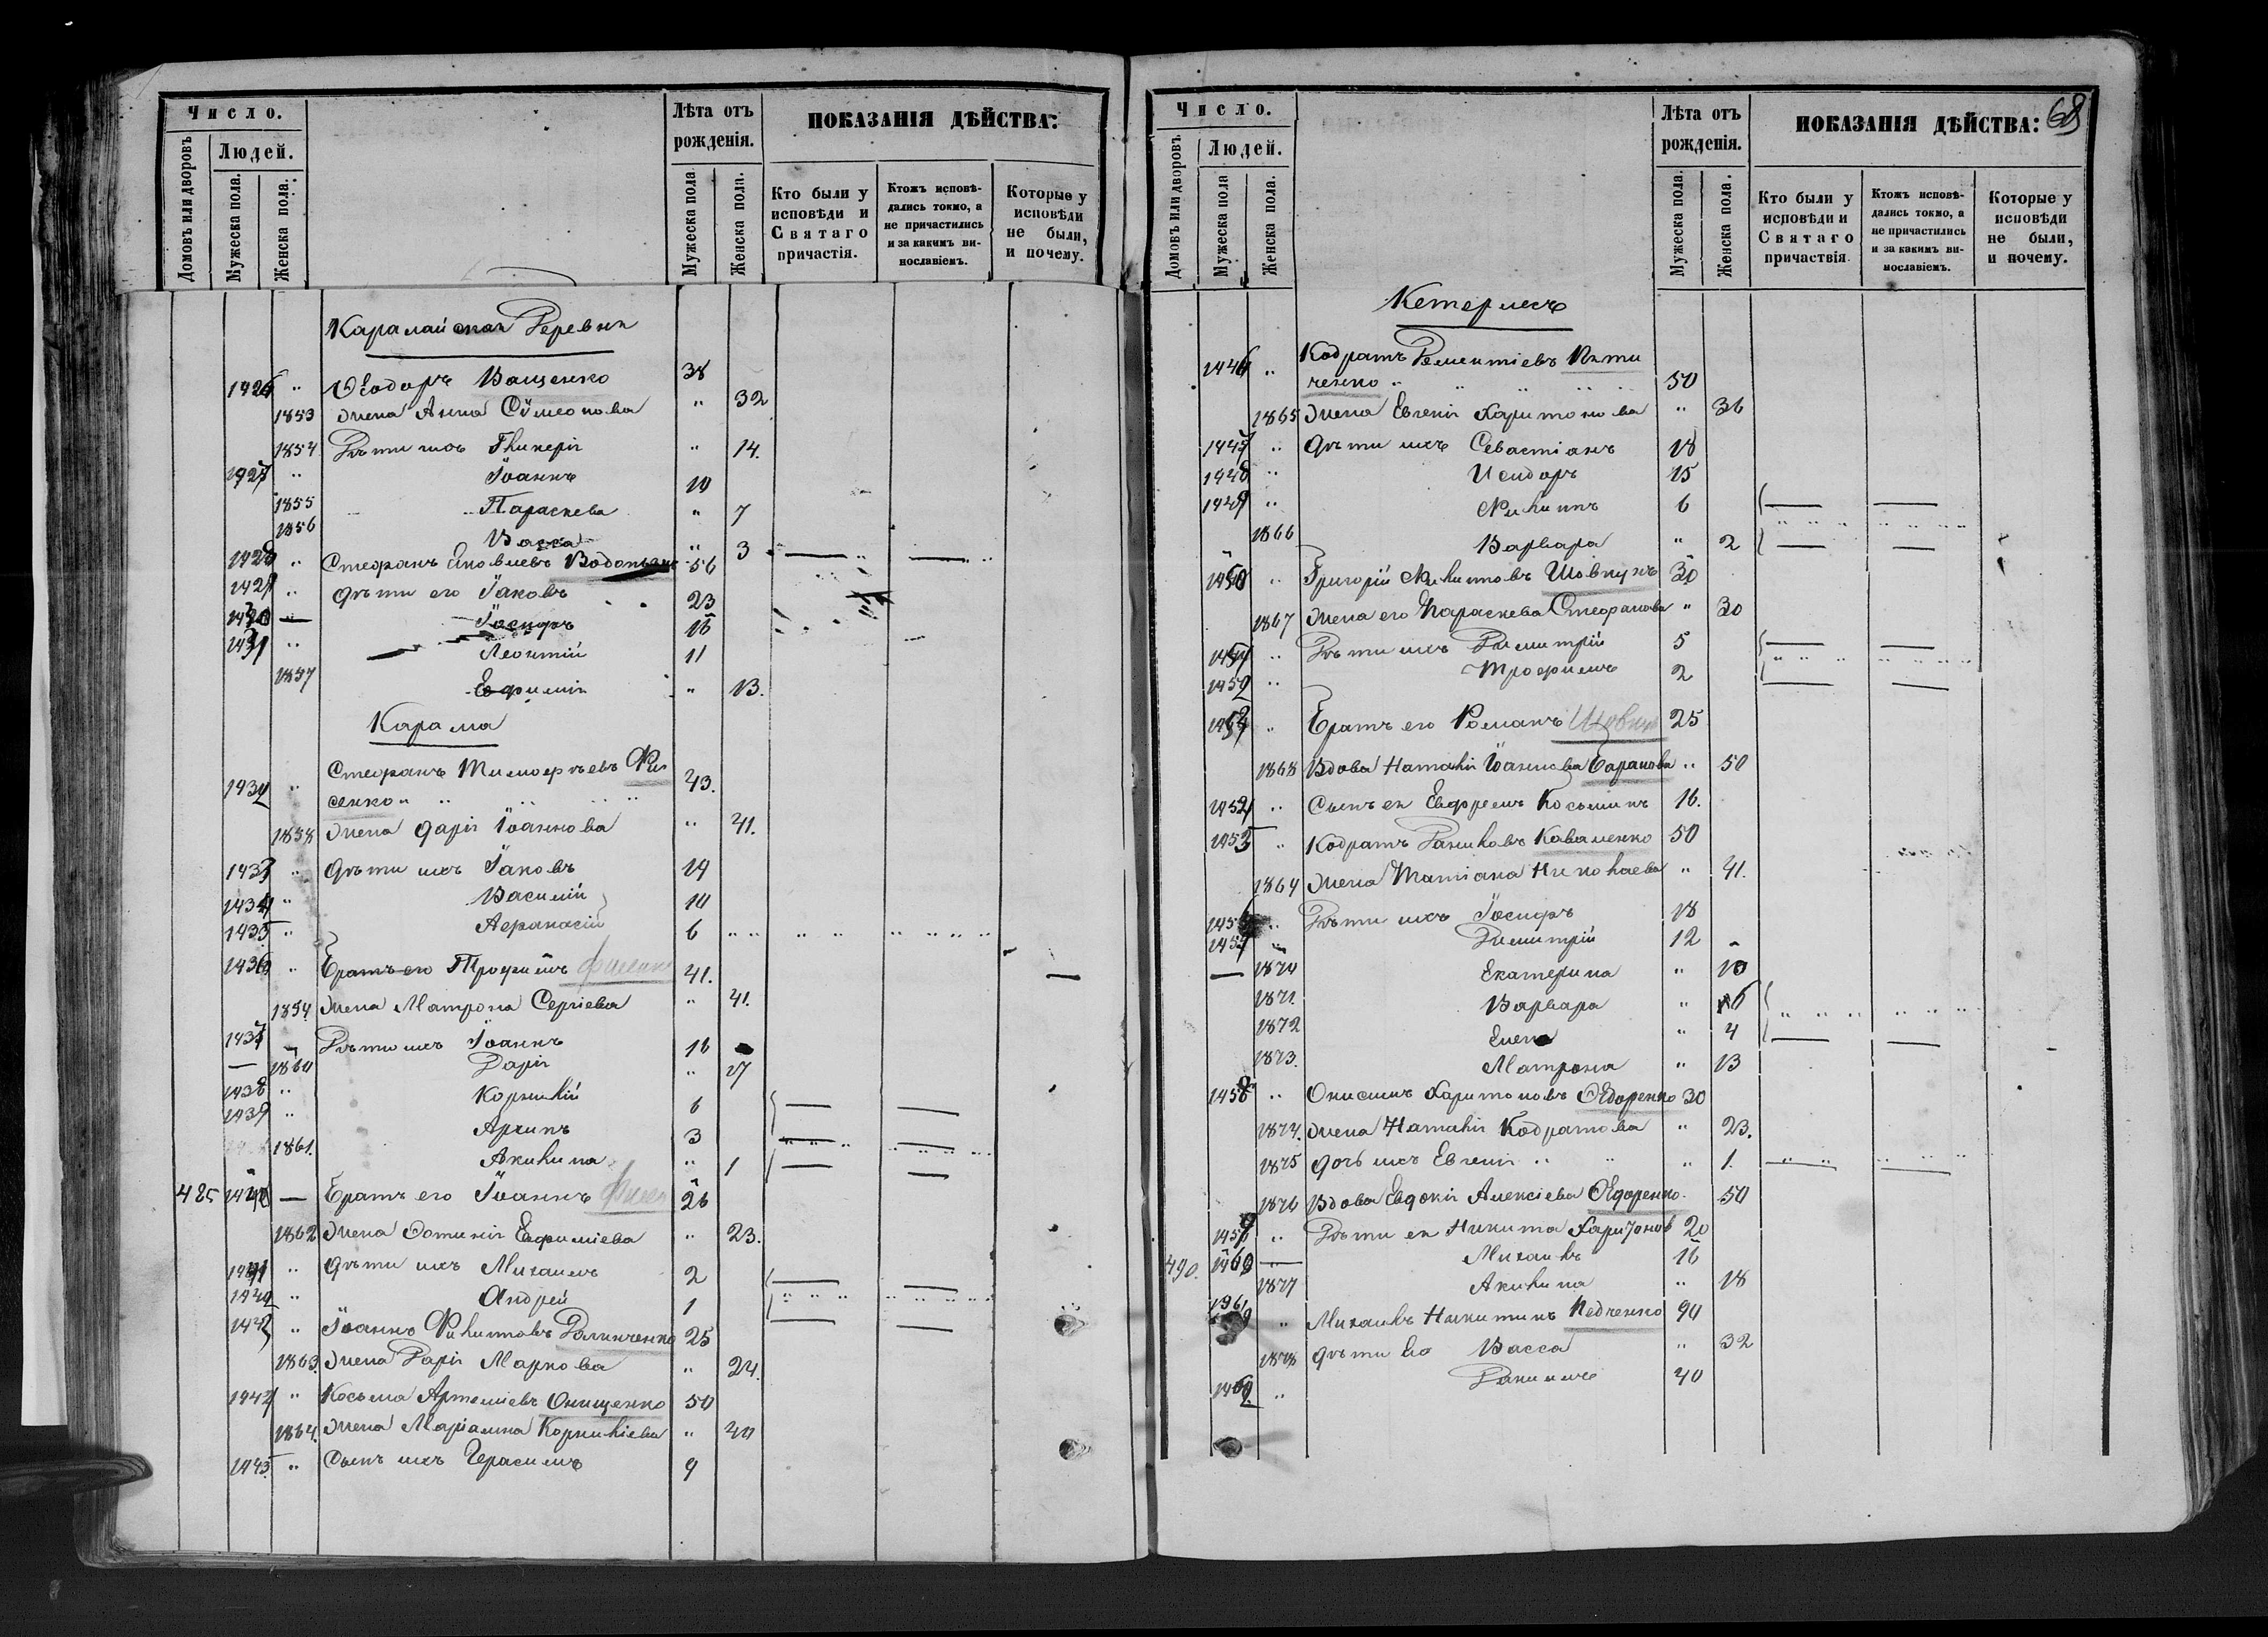 Число.
Людей.
Домовъ или дворовъ
Мужеска пола.
Женска пола.
Лѣта отъ
рожденія.
Мужеска пола
Женска пола.
ПОКАЗАНІЯ ДѢЙСТВА:
Кто были у
исповѣди и
Святаго
причастія.
Ктожъ исповѣ-
дались токмо, а
не причастились
и за какимъ ви-
нословіемъ.
Которые у
исповѣди
не были,
и почему.
Деревня
1426 " Ѳеодоръ Ващенко 38
1853 Жена Анна Сѵмеонова " 32
1854 Дѣти ихъ Гликерія " 14.
1427 " Іоаннъ 10
1855 Параскева " 7
1856 Васса " 3
1428 " Стефанъ Яковлевъ 56
1429 " Дѣти его Іаковъ 23
1430 — Іосифъ 16
1431 " Леонтій 11
1857 Евфимія " 13.
Стефанъ Тимофѣевъ Фи
1432 " сенко " 43.
1858 Жена Дарія Іоаннова " 41.
1433 " Дѣти ихъ Іаковъ 14
1434 " Василій 10
1435 " Афанасій 6
1436 " Братъ его Трофимъ 41.
1859 Жена Матрона Сергіева " 41.
1437 Дѣти ихъ Іоаннъ 16
— 1860 Дарія " 17
1438 " Корнилій 6
1439 " Архипъ 3
1861. Акилина " 1
485 — Братъ его Іоаннъ 26
1862 Жена Фотинія Евфиміева " 23.
1441 " Дѣти ихъ Михаилъ 2
1442 " Андрей 1
1443 " Іоаннъ Филипповъ 25
1863. Жена Дарія Маркова " 24.
1444 " Косьма Артеміевъ Онищенко 50
1864. Жена Маріамна Корниліева " 40
1445. " Сынъ ихъ Герасимъ 9
68
Число.
Людей.
Домовъ или дворовъ
Мужеска пола
Женска пола.
Лѣта отъ
рожденія.
Мужеска пола.
Женска пола.
ПОКАЗАНІЯ ДѢЙСТВА:
Кто были у
исповѣди и
Святаго
причаствія.
Ктожъ исповѣ-
дались токмо, а
не причастились
и за какимъ ви-
нославіемъ.
Которые у
исповѣди
не были,
и почему.
Кодратъ Дементіевъ
1446 " ченко " 50
1865 Жена Евгенія Харитонова " 36
1447 " Дѣти ихъ Севастіанъ 18
1448 " Исидоръ 15
1449 " Филиппъ 6
1866 Варвара " 2
1450 " Григорій Филипповъ 30
1867 Жена его Параскева Стефанова " 30
1451 " Дѣти ихъ Димитрій 5
1452 " Трофимъ 2
1453 " Братъ его Романъ 25
1868 Вдова Наталія Іоаннова Баранова " 50
1454 " Сынъ ея Евфремъ Косьминъ 16.
1455 " Кодратъ Даниловъ Коваленко 50
1869 Жена Татіана Николаева " 41.
1456 " Дѣти ихъ Іосифъ 18
1457 " Димитрій 12
— 1870 Екатерина " 10
1871. Варвара " 6
1872 Елена " 4
1873. Матрона " 13
1458 " Онисимъ Харитоновъ Ѳедоренко 30
1874. Жена Наталія Кодратова " 23.
1875 Дочь ихъ Евгенія " " 1.
1876 Вдова Евдокія Алексіева Ѳедоренко. 50
1459 " Дѣти ея Никита Харитонов 20
490. 1460 — Михаилъ 16
1877 Акилина " 18
1461 " Михаилъ Никитинъ 90
1878 Дѣти его Васса " 32
1462. " Даніилъ 40